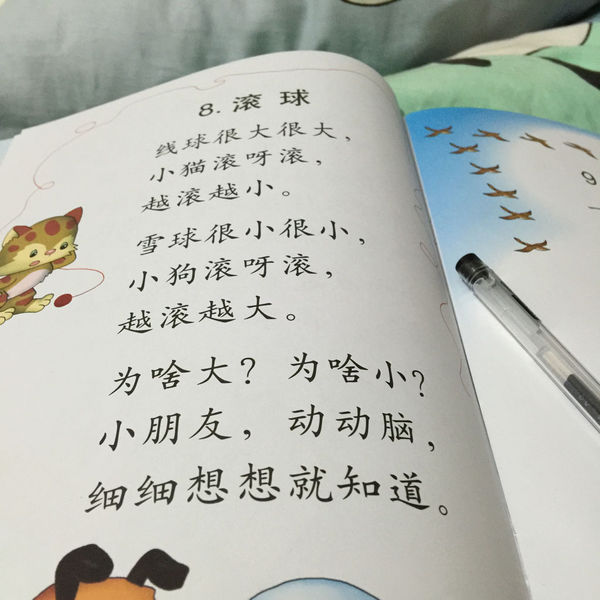 8. 滚球
线球很大很大，
小猫滚呀滚，
越滚越小。
雪球很小很小，
小狗滚呀滚，
越滚越大。
为啥大？为啥小？
小朋友，动动脑，
细细想想就知道。
9